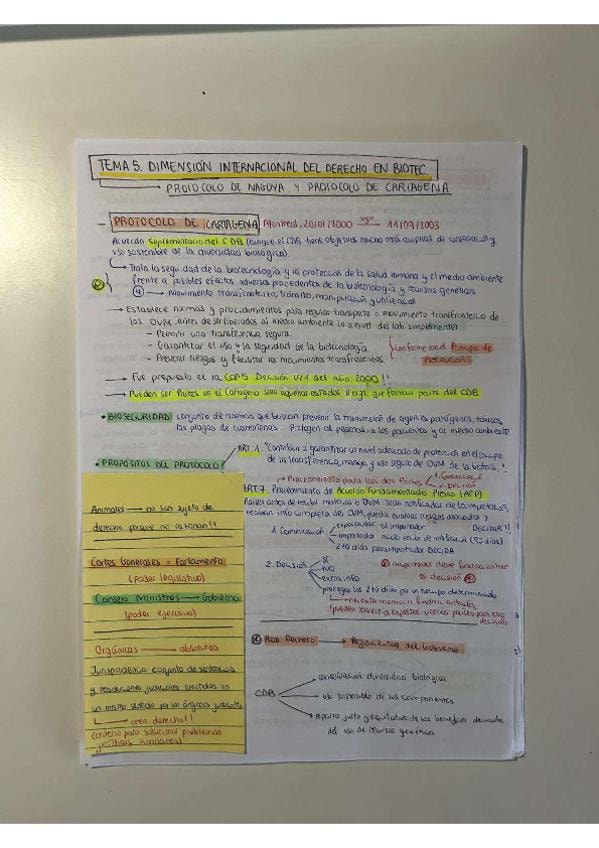 TEMA 5. DIMENSIÓN INTERNACIONAL DEL DERECHO EN BIOTEC.
PROTOCOLO DE NAGOYA Y PROTOCOLO DE CARTAGENA
- PROTOCOLO DE CARTAGENA Montreal, 20/01/2000 → 11/09/2003
Acuerdo suplementario del CDB (aunque el CDB tiene objetivos mucho más amplios de conservación y
uso sostenible de la diversidad biológica).
Trata la seguridad de la biotecnología y la protección de la salud humana y el medio ambiente
frente a posibles efectos adversos procedentes de la biotecnología y recursos genéticos
Movimiento transfronterizo, tránsito, manipulación y utilización
→ Establece normas y procedimientos para regular transporte o movimiento transfronterizo de
los OVM, antes de ser liberados al medio ambiente (o a nivel del lab. simplemente)
- Permitir una transferencia segura.
- Garantizar el uso y la seguridad de la biotecnología
- Prevenir riesgos y facilitar los movimientos transfronterizos
Conforme con el Principio de Precaución
→ Fue propuesto en la COP5 Decisión V/1 del año 2000!!
→ Pueden ser Partes en el Cartagena solo aquellos estados y orgs. que forman parte del CDB
• BIOSEGURIDAD: conjunto de normas que buscan prevenir la transmisión de agentes patógenos, tóxicos,
las plagas de bacterianas... Protegen al personal, a los pacientes y al medio ambiente
• PROPÓSITOS DEL PROTOCOLO
ART. 1. "Contribuir a garantizar un nivel adecuado de protección en el campo
de la transferencia, manejo y uso seguro de OVM de la biotecn."
→ Procedimiento para las dos Partes 1. Comunicación
2. Decisión
ART. 7. Procedimiento de Acuerdo Fundamentado Previo (AFP)
Partes antes de recibir material o OVM sean notificadas de la importación,
reciban info completa del OVM, pueda evaluar riesgos asociados y
DECIDIR!!
1. Comunicación
exportador al importador
importador acuse recibo de notificación (90 días)
270 días para importador DECIDA
2. Decisión
SÍ
NO
extra info
prolongar los 270 días por un tiempo determinado
importador debe fundamentar
su decisión
Real Decreto → Reglamentos del Gobierno
CDB
conservación diversidad biológica
uso sostenible de sus componentes
reparto justo y equitativo de los beneficios derivados
del uso de recursos genéticos
Animales → no son sujeto de
derecho porque no razonan!!
Cortes Generales = Parlamento
(poder legislativo)
Consejo Ministros → Gobierno
(poder ejecutivo)
Orgánicas → absolutas
Jurisprudencia: conjunto de sentencias
y resoluciones judiciales emitidas en
un mismo sentido por los órganos judiciales
crea derecho!!
(criterio para solucionar problemas
jurídicos similares)